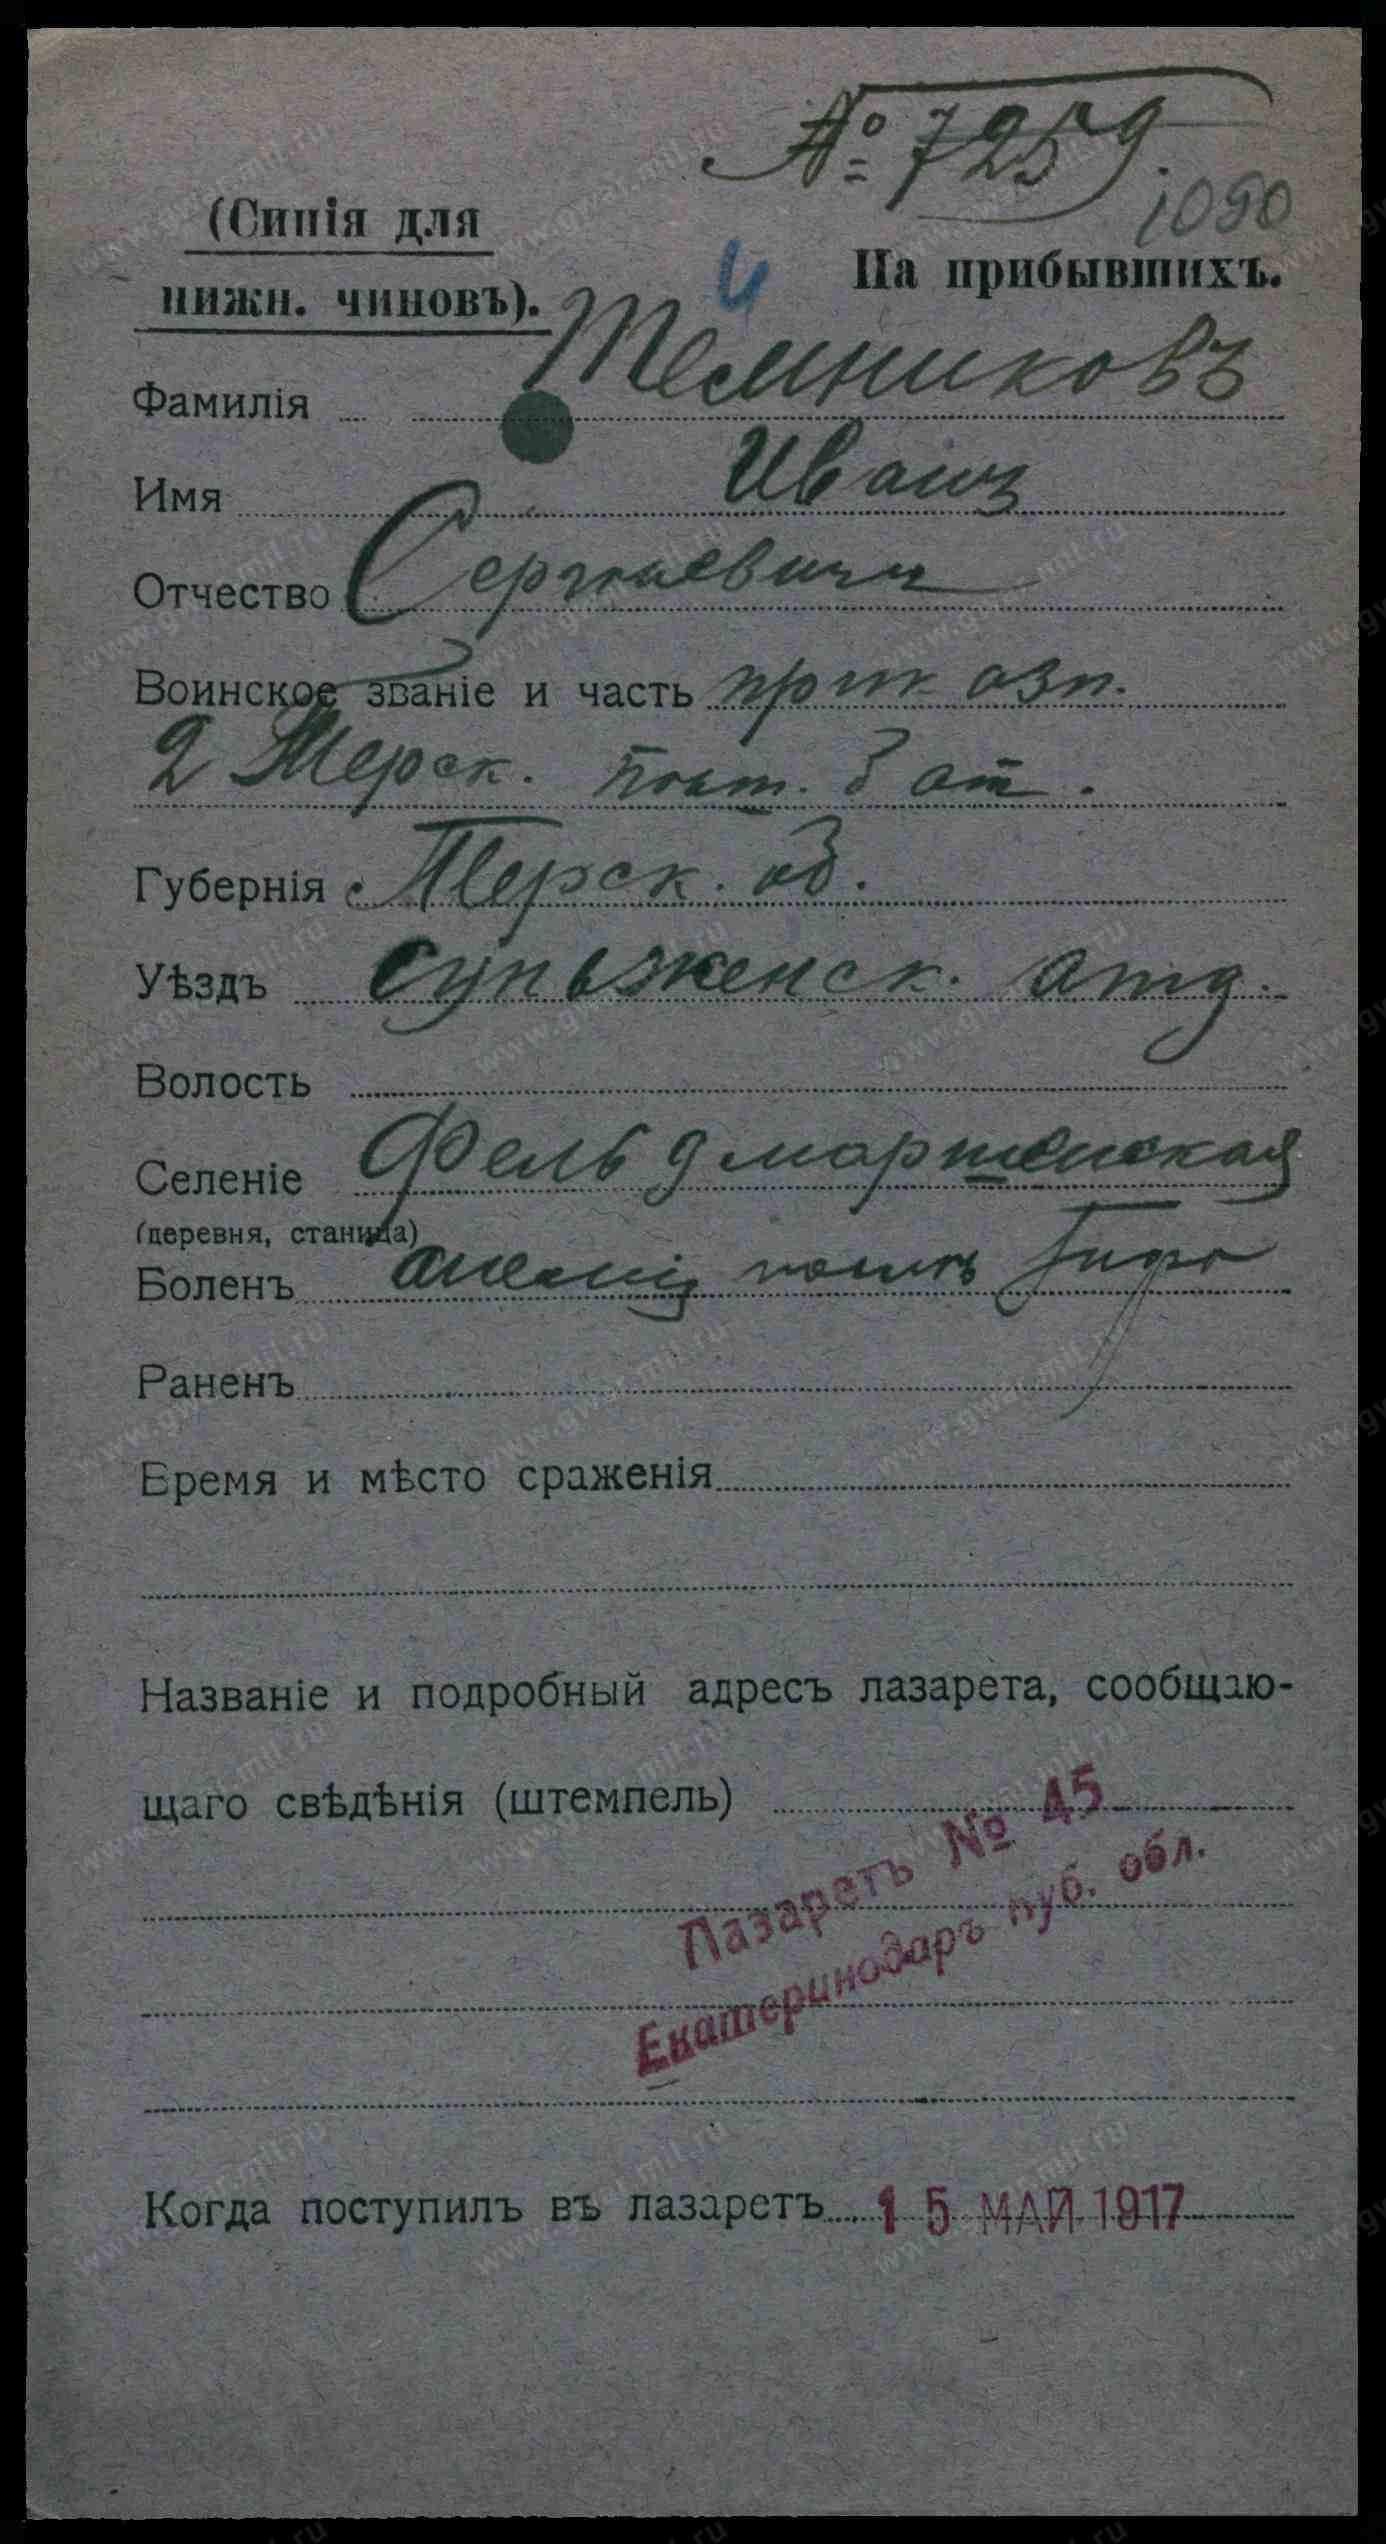 № 7259.
1090
(Синія для
нижн. чиновъ).
На прибывшихъ.
Фамилія Темниковъ
Имя Иванъ
Отчество Сергиевичъ
Воинское званіе и часть
2 Терск. 
Губернія Терск. об.
Уѣздъ Суньженск. отд.
Волость
Селеніе Фельдмаршенская
(деревня, станица)
Боленъ
Раненъ
Время и мѣсто сраженія
Названіе и подробный адресъ лазарета, сообщаю-
щаго свѣдѣнія (штемпель)
Лазаретъ № 45
Екатеринодаръ Куб. обл.
Когда поступилъ въ лазаретъ 15 МАЙ 1917